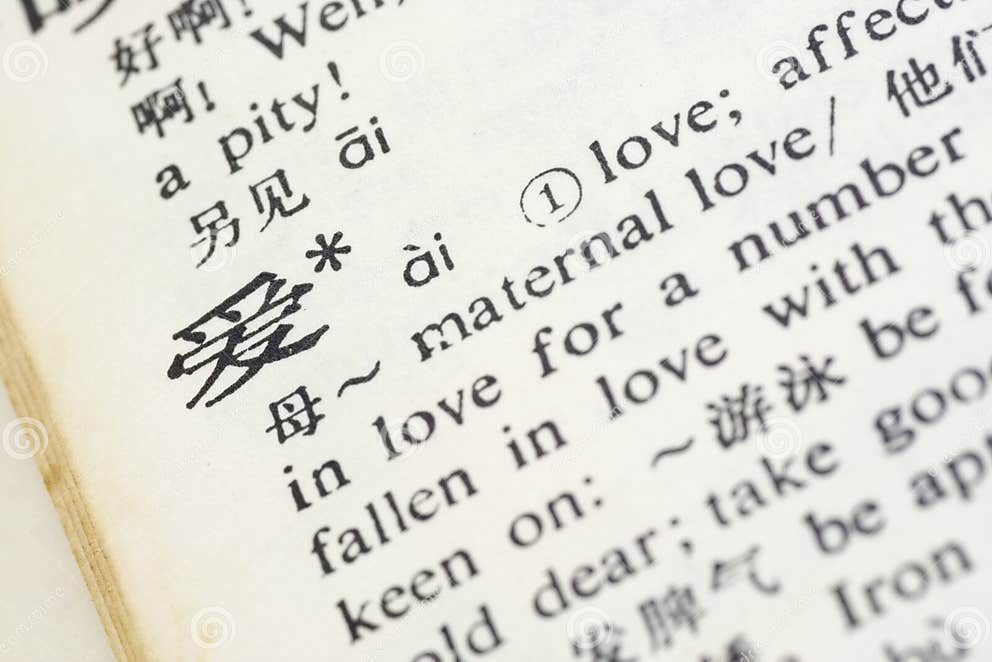 好啊!
啊! Well,
a pity!
另见 āi
爱* ài ① love; affec
母～ maternal love/ 他们
in love for a number
fallen in love with th
keen on: ～游泳 be fo
old dear; take goo
发脾气 be ap
Iron